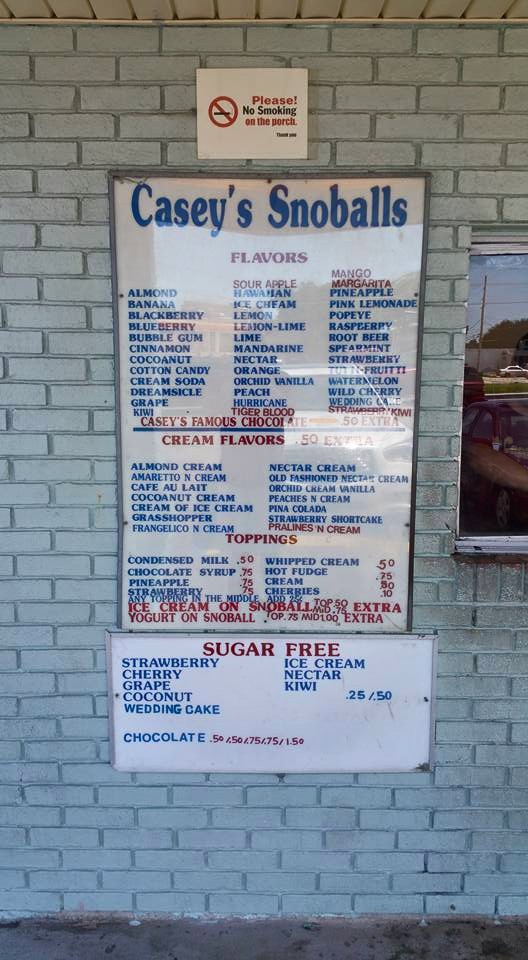 Please!
No Smoking
on the porch.
Thank you
Casey's Snoballs
FLAVORS
ALMOND
BANANA
BLACKBERRY
BLUEBERRY
BUBBLE GUM
CINNAMON
COCOANUT
COTTON CANDY
CREAM SODA
DREAMSICLE
GRAPE
KIWI
SOUR APPLE
HAWAIIAN
ICE CREAM
LEMON
LEMON-LIME
LIME
MANDARINE
NECTAR
ORANGE
ORCHID VANILLA
PEACH
HURRICANE
TIGER BLOOD
MANGO
MARGARITA
PINEAPPLE
PINK LEMONADE
POPEYE
RASPBERRY
ROOT BEER
SPEARMINT
STRAWBERRY
TUTTI-FRUITTI
WATERMELON
WILD CHERRY
WEDDING CAKE
STRAWBERRY KIWI
CASEY'S FAMOUS CHOCOLATE .50 EXTRA
CREAM FLAVORS .50 EXTRA
ALMOND CREAM
AMARETTO N CREAM
CAFE AU LAIT
COCOANUT CREAM
CREAM OF ICE CREAM
GRASSHOPPER
FRANGELICO N CREAM
NECTAR CREAM
OLD FASHIONED NECTAR CREAM
ORCHID CREAM VANILLA
PEACHES N CREAM
PINA COLADA
STRAWBERRY SHORTCAKE
PRALINES 'N CREAM
TOPPINGS
CONDENSED MILK .50
CHOCOLATE SYRUP .75
PINEAPPLE .75
STRAWBERRY .75
WHIPPED CREAM .50
HOT FUDGE .75
CREAM
CHERRIES .10
ANY TOPPING IN THE MIDDLE ADD 25¢
ICE CREAM ON SNOBALL TOP.50 MID.75 EXTRA
YOGURT ON SNOBALL TOP.75 MID1.00 EXTRA
SUGAR FREE
STRAWBERRY
CHERRY
GRAPE
COCONUT
WEDDING CAKE
ICE CREAM
NECTAR
KIWI
.25/.50
CHOCOLATE .50/.50/.75/.75/1.50